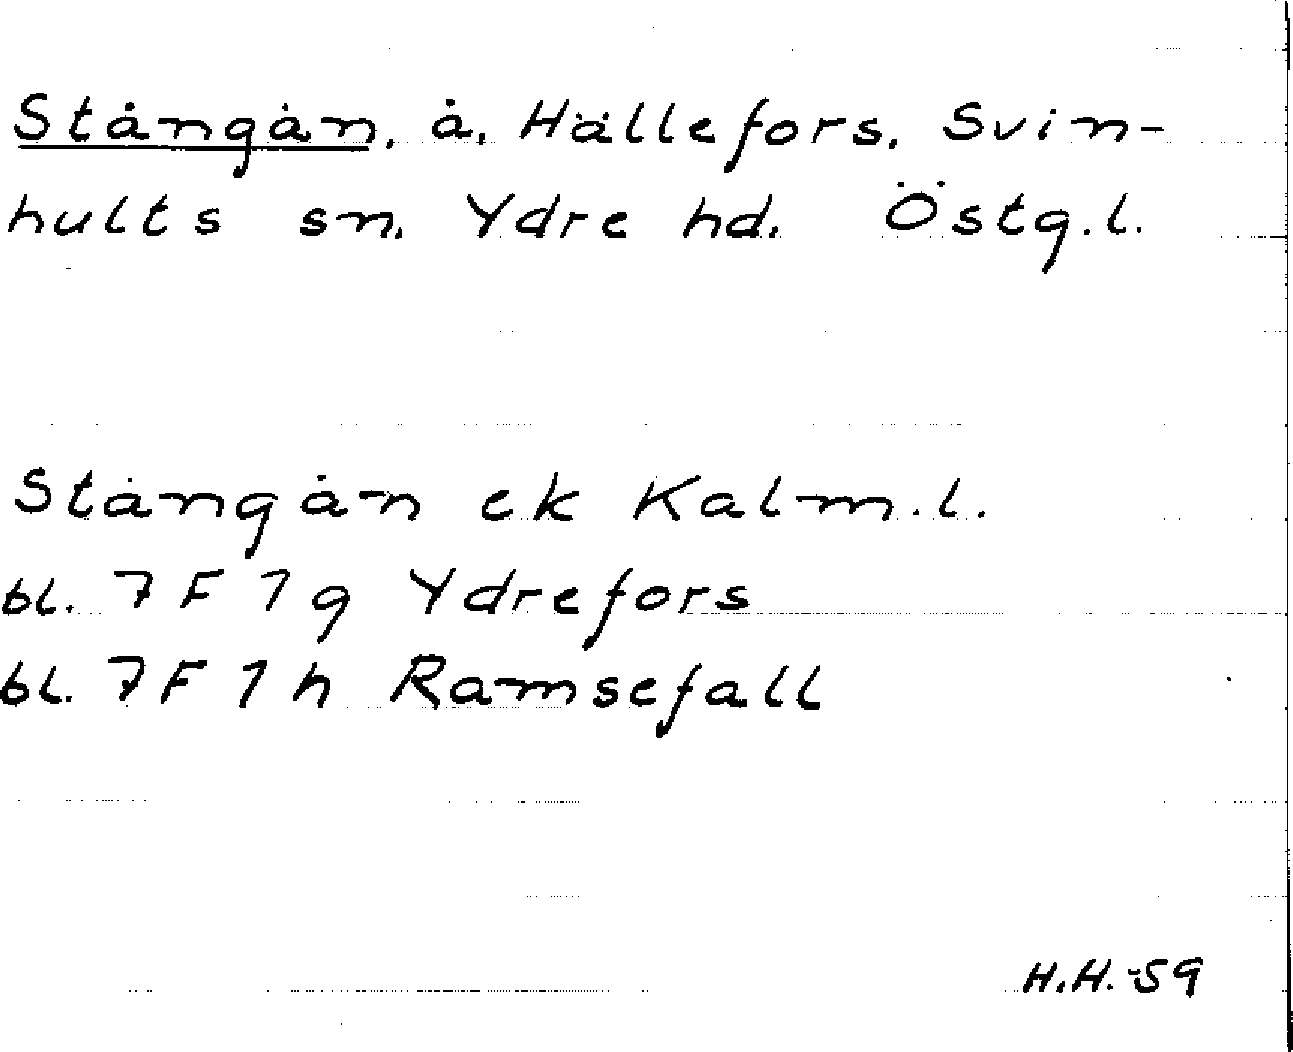 Stångån, å, Hällefors, Svin-
hults sn, Ydre hd, Östg.l.
Stångån ek Kalm.l.
bl. 7F 1g Ydrefors
bl. 7F 1h Ramsefall
H.H.-59